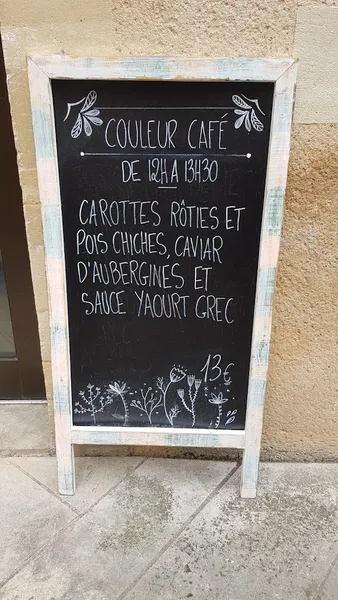 COULEUR CAFÉ
DE 12H A 13H30
CAROTTES RÔTIES ET
POIS CHICHES, CAVIAR
D'AUBERGINES ET
SAUCE YAOURT GREC
13€